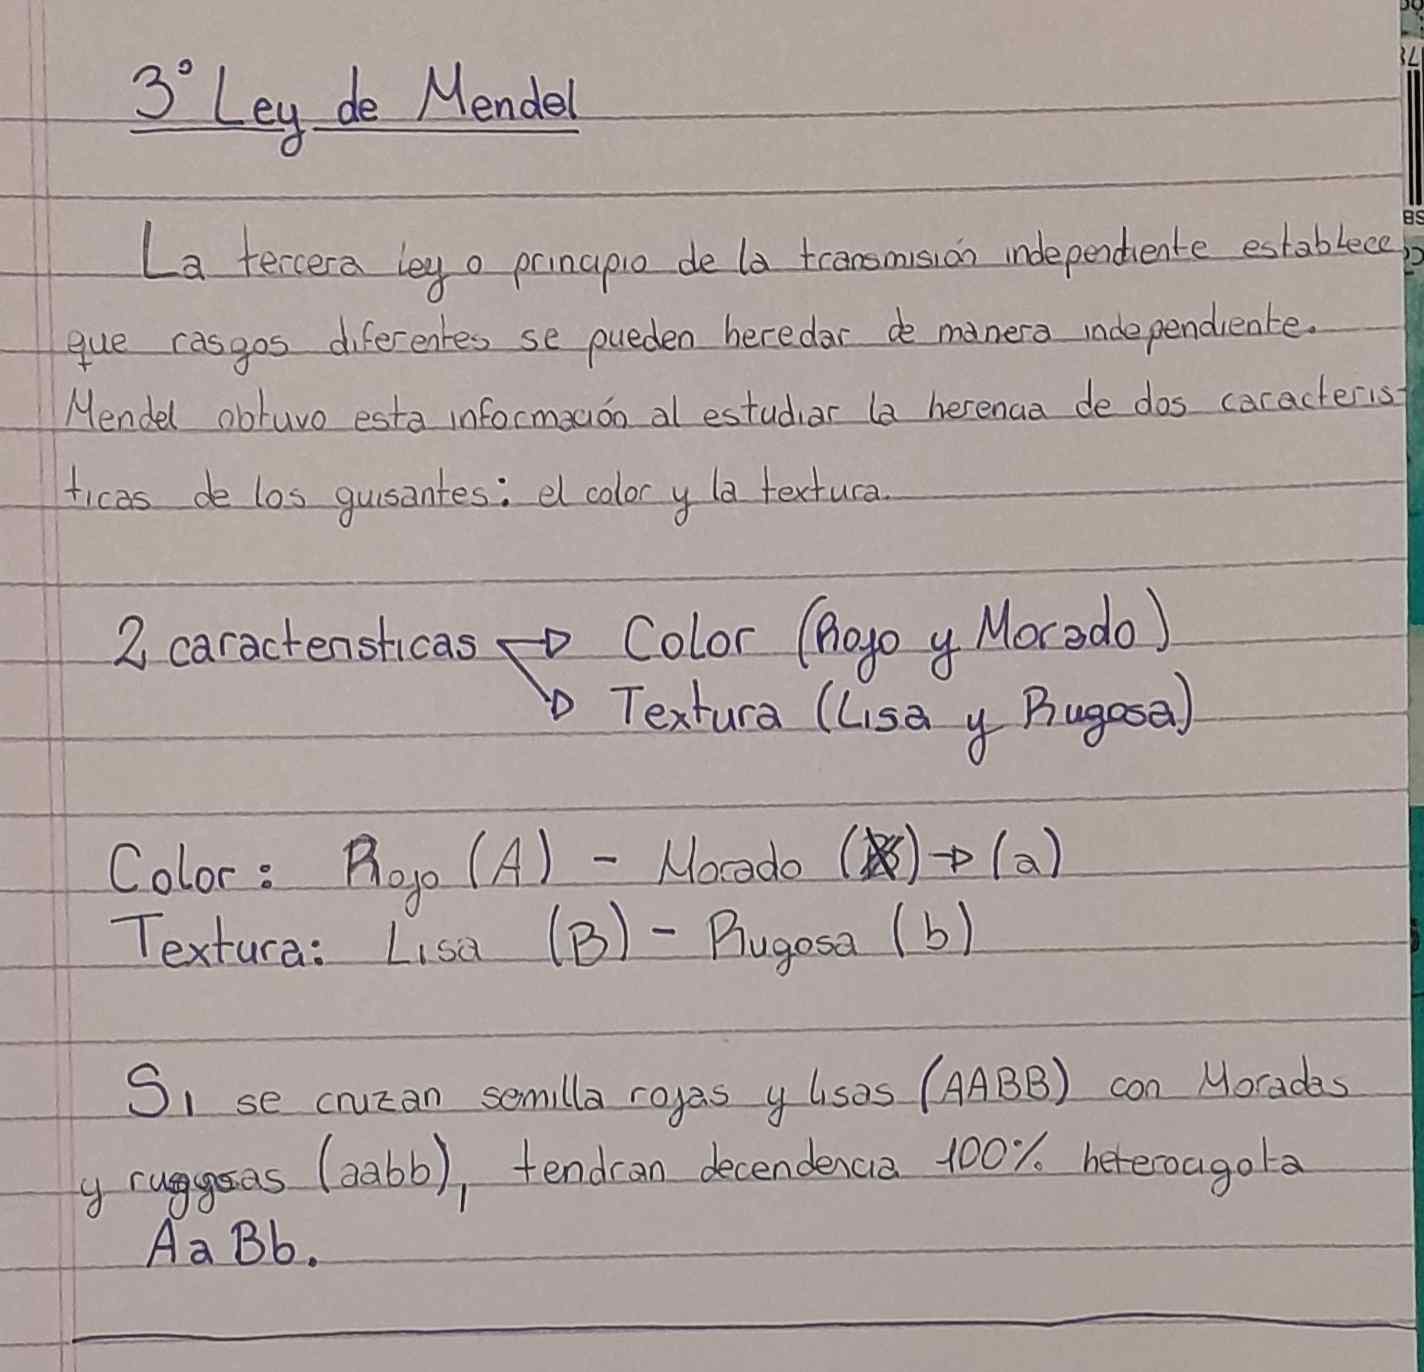 3° Ley de Mendel
La tercera ley o principio de la transmisión independiente establece
que rasgos diferentes se pueden heredar de manera independiente.
Mendel obtuvo esta información al estudiar la herencia de dos caracterís-
ticas de los guisantes: el color y la textura.
2 características → Color (Rojo y Morado)
→ Textura (Lisa y Rugosa)
Color: Rojo (A) - Morado ( ) → (a)
Textura: Lisa (B) - Rugosa (b)
Si se cruzan semilla rojas y lisas (AABB) con Moradas
y rugosas (aabb), tendran decendencia 100% heterocigota
AaBb.
BS